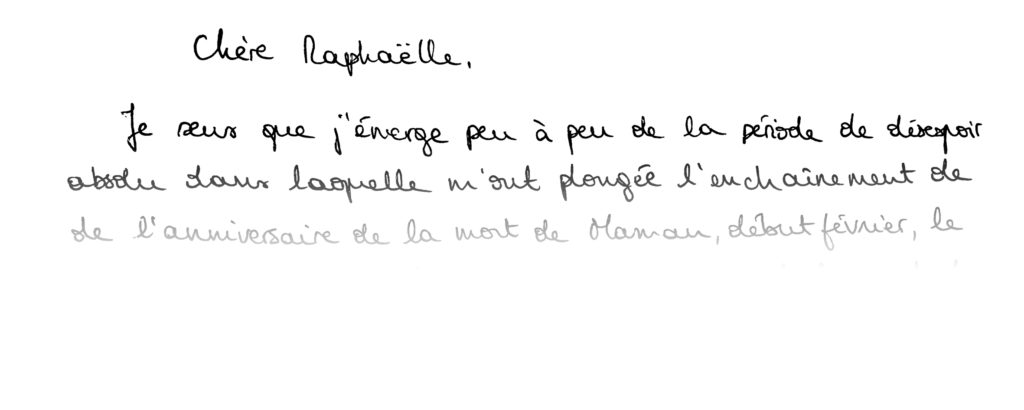 Chère Raphaëlle,
Je sens que j'émerge peu à peu de la période de désespoir
absolu dans laquelle m'ont plongée l'enchaînement de
de l'anniversaire de la mort de Maman, début février, le